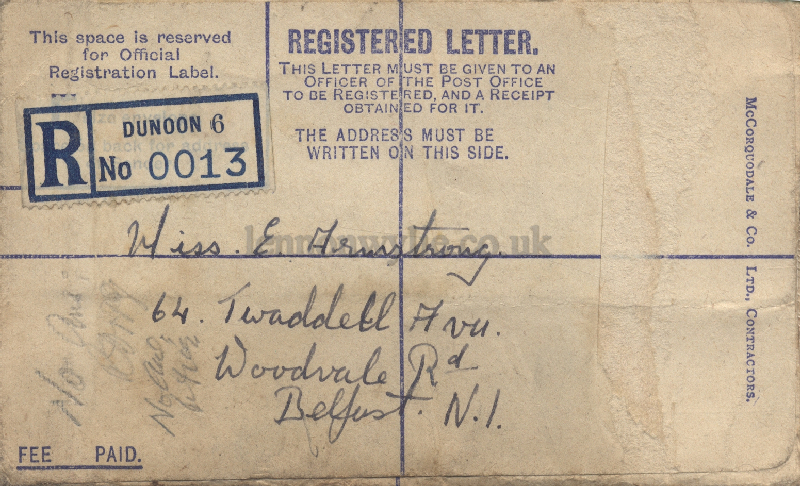 This space is reserved
for Official
Registration Label.
REGISTERED LETTER.
THIS LETTER MUST BE GIVEN TO AN
OFFICER OF THE POST OFFICE
TO BE REGISTERED, AND A RECEIPT
OBTAINED FOR IT.
THE ADDRESS MUST BE
WRITTEN ON THIS SIDE.
R
DUNOON 6
No 0013
McCORQUODALE & Co. LTD., CONTRACTORS.
Miss. E. Armstrong.
64. Twaddell Avu.
Woodvale Rd
Belfast. N.I.
No Ans
No Ans,
FEE PAID.
lennonwylie.co.uk